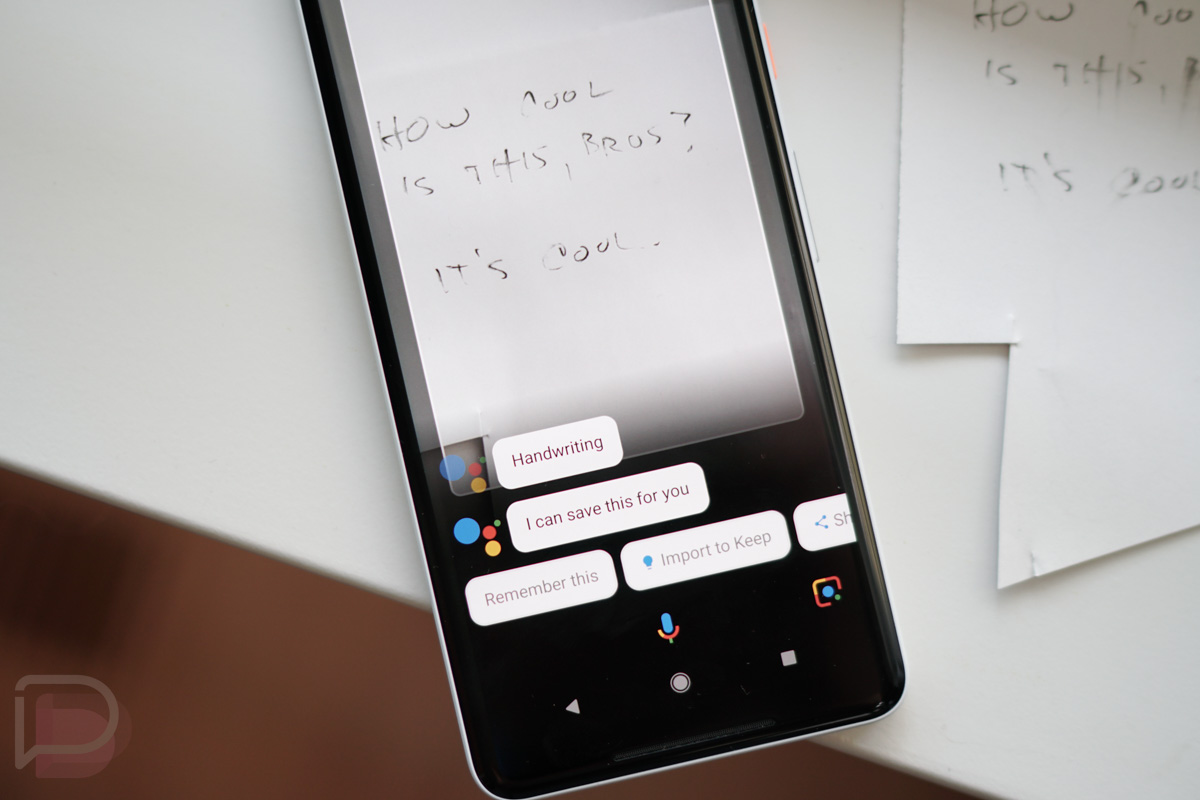 HOW COOL
IS THIS, BROS?
IT'S COOL.
Handwriting
I can save this for you
Remember this
Import to Keep
Sh
HOW COO
IS THIS, B
IT'S COOL